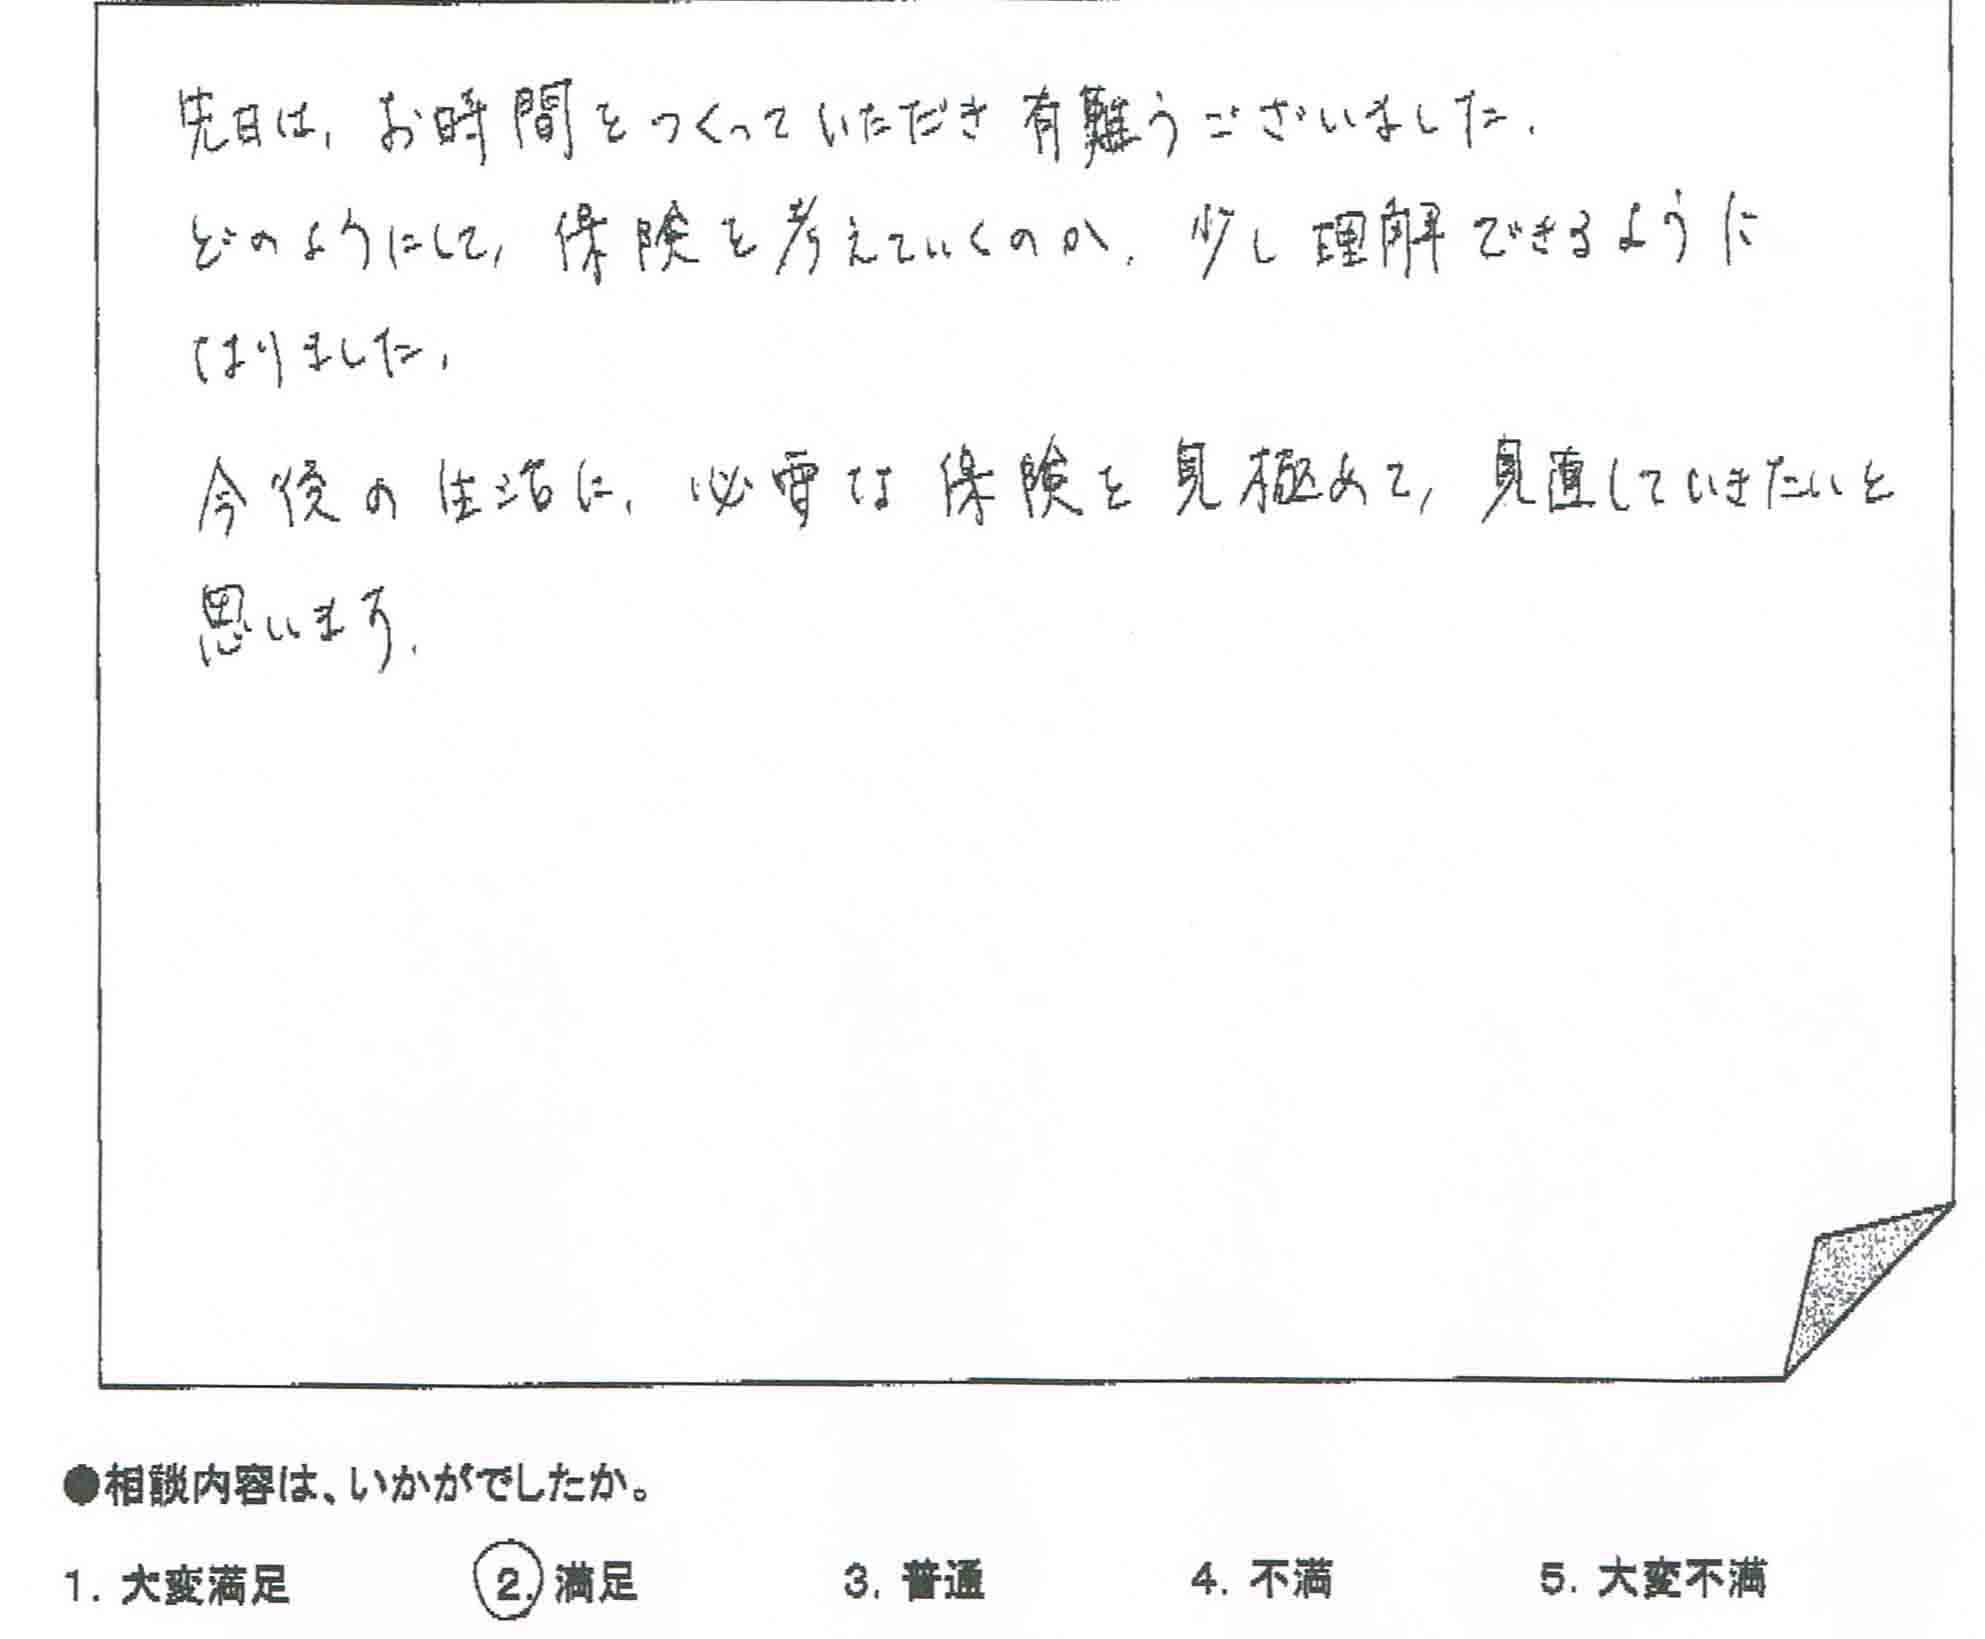 先日は、お時間をつくっていただき有難うございました。
どのようにして、保険を考えていくのか、少し理解できるように
なりました。
今後の生活に、必要な保険を見極めて、見直していきたいと
思います。
●相談内容は、いかがでしたか。
1. 大変満足 2. 満足 3. 普通 4. 不満 5. 大変不満